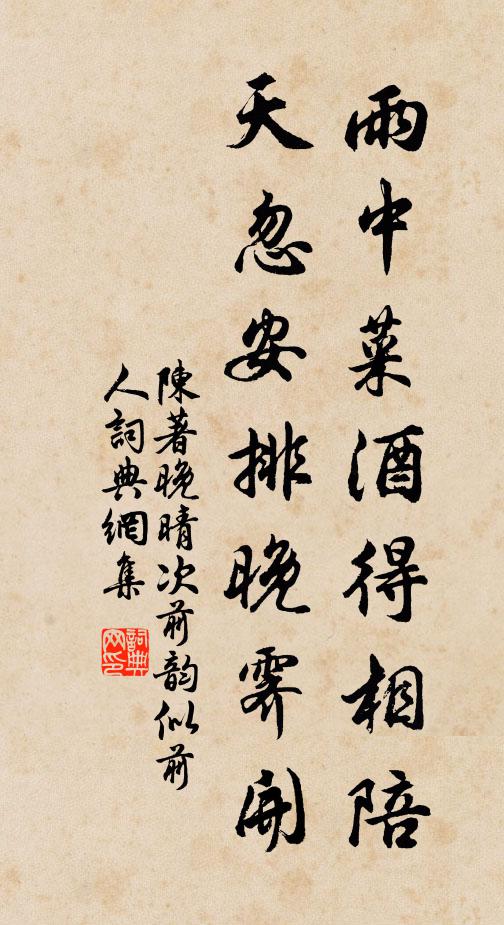 雨中菜酒得相陪
天忽安排晚霽開
陳著晚晴次前韵似前
人詞典網集
詞典网印